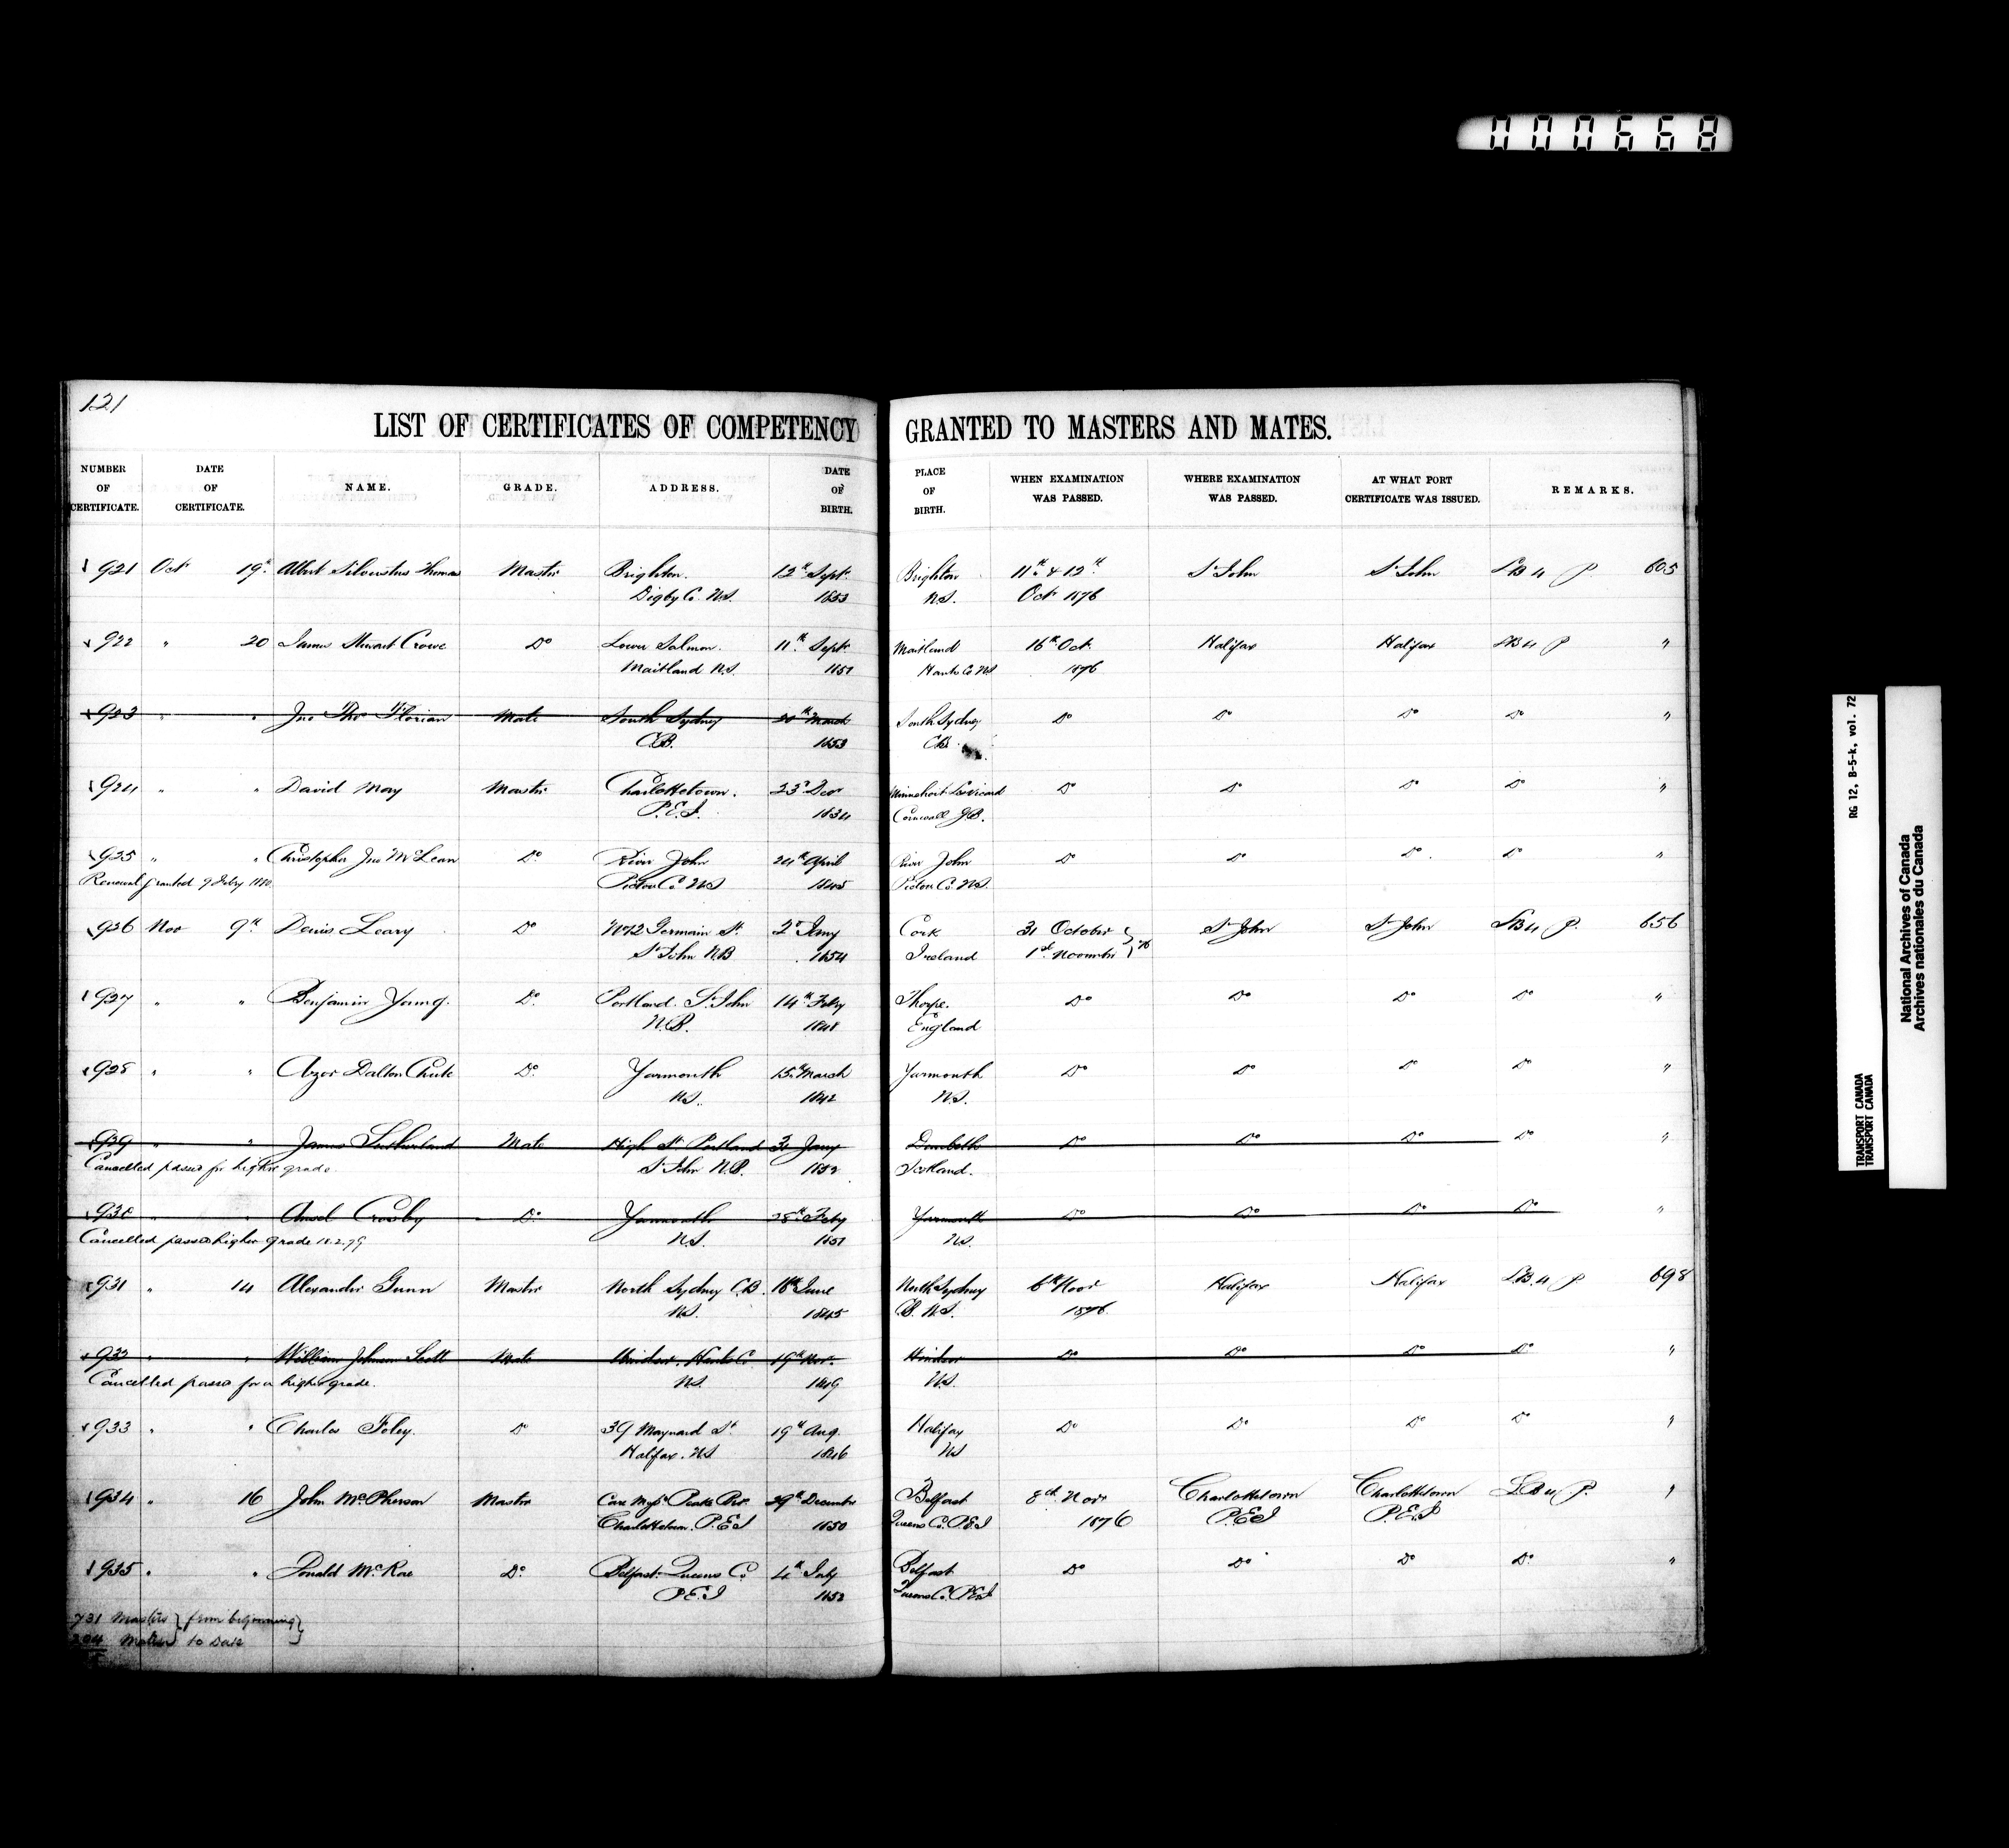 000668
121
LIST OF CERTIFICATES OF COMPETENCY GRANTED TO MASTERS AND MATES.
NUMBER OF CERTIFICATE. DATE OF CERTIFICATE. NAME. GRADE. ADDRESS. DATE OF BIRTH. PLACE OF BIRTH. WHEN EXAMINATION WAS PASSED. WHERE EXAMINATION WAS PASSED. AT WHAT PORT CERTIFICATE WAS ISSUED. REMARKS.
921 Oct 19th Albert Silvestus Thomas Master Brighton. 12th Sept. Brighton 11th & 12th St John St John LB 4 P. 605
Digby Co. N.S. 1853 N.S. Oct 1876
922 " 20 James Stewart Crowe Do Lower Salmon. 11th Sept. Maitland 16th Oct. Halifax Halifax LB 4 P "
Maitland N.S. 1851 Hants Co NS 1876
923 " " Jno Thos Florian Mate South Sydney 20th March South Sydney Do Do Do Do "
C.B. 1853 CB
924 " " David May Master Charlottetown. 23d Decr Do Do Do Do "
P.E.I. 1834 Cornwall G.B.
925 " " Christopher Jno McLean Do River John 24th April River John Do Do Do Do "
Renewal granted 9 Feby 1880 Pictou Co. NS 1845 Pictou Co. NS
926 Nov 9th Denis Leary Do No 72 Germain St. 2d Jany Cork 31 October } 76 St John St John LB 4 P. 656
St John N.B 1854 Ireland 1st November
927 " " Benjamin Young. Do. Portland. St. John 14th Feby Thorpe. Do Do Do Do "
N.B. 1848 England
928 " " Azor Dalton Chute Do. Yarmouth 15th March Yarmouth Do Do Do Do "
N.S. 1842 N.S.
929 " " James Sutherland Mate High St. Portland 3d Jany Do Do Do Do "
Cancelled passed for higher grade. St John N.B. 1852 Scotland.
930 " " Ansel Crosby Do. Yarmouth 28th Feby Yarmouth Do Do Do Do "
Cancelled passed higher grade 18.2.79 N.S. 1851 N.S.
931 " 14 Alexander Gunn Master North Sydney C.B. 18th June North Sydney 6th Novr Halifax Halifax L.B. 4 P 698
N.S. 1845 C.B. N.S. 1876
932 " " William Johnson Scott Mate Windsor. Hants Co 19th Nov. Windsor Do Do Do Do "
Cancelled passed for a higher grade. NS. 1849 N.S.
933 " " Charles Foley. Do 39 Maynard St. 19th Aug. Halifax Do Do Do Do "
Halifax. NS 1846 NS
934 " 16 John McPherson Master Care Messrs Peake Bros. 29th December Belfast 8th Novr Charlottetown Charlottetown LB 4 P. "
Charlottetown. P.E.I 1850 Queens Co. P.E.I 1876 P.E.I P.E.I
935 " " Donald McRae Do. Belfast. Queens Co 4th July Belfast Do Do Do Do. "
P.E.I 1852 Queens Co. P.E.I
731 Masters } from beginning }
204 Mates } to Date
RG 12, B-5-k, vol. 72
TRANSPORT CANADA
TRANSPORT CANADA
National Archives of Canada
Archives nationales du Canada